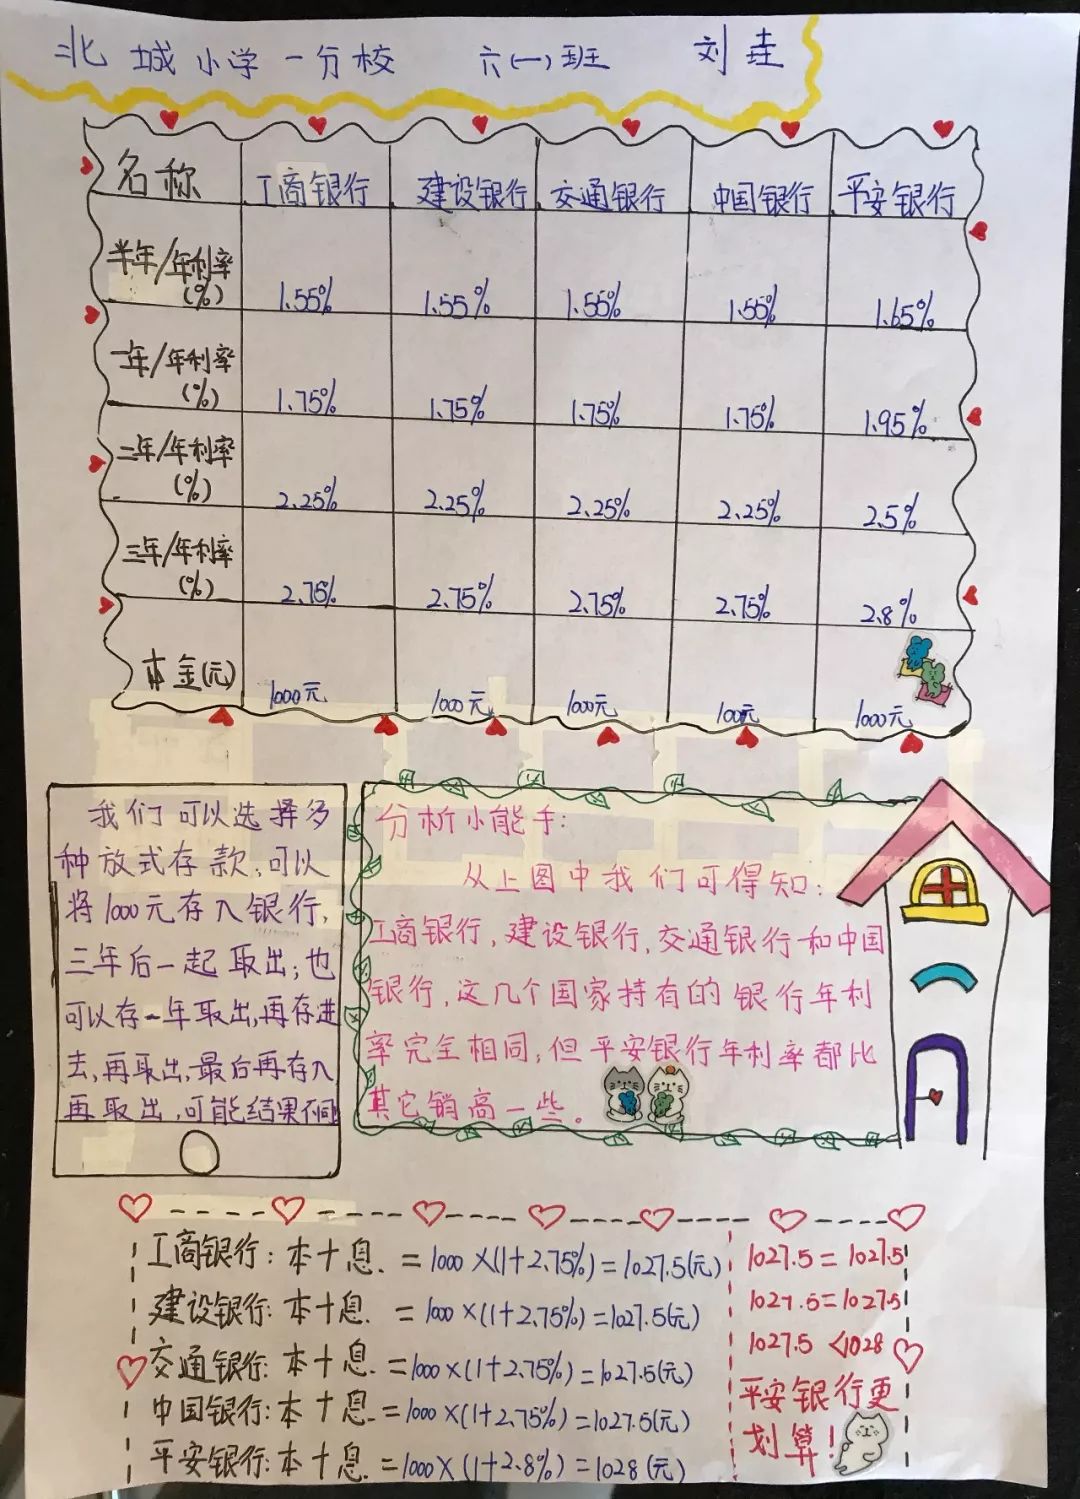 北城小学一分校 六(一)班 刘垚
名称 工商银行 建设银行 交通银行 中国银行 平安银行
半年/年利率(%) 1.55% 1.55% 1.55% 1.55% 1.65%
一年/年利率(%) 1.75% 1.75% 1.75% 1.75% 1.95%
二年/年利率(%) 2.25% 2.25% 2.25% 2.25% 2.5%
三年/年利率(%) 2.75% 2.75% 2.75% 2.75% 2.8%
本金(元) 1000元 1000元 1000元 100元 1000元
我们可以选择多
种放式存款,可以
将1000元存入银行,
三年后一起取出;也
可以存一年取出,再存进
去,再取出,最后再存入
再取出,可能结果不同
分析小能手:
从上图中我们可得知:
工商银行,建设银行,交通银行和中国
银行,这几个国家持有的银行年利
率完全相同,但平安银行年利率都比
其它销高一些。
工商银行:本十息=1000×(1+2.75%)=1027.5(元)
建设银行:本十息=1000×(1+2.75%)=1027.5(元)
交通银行:本十息=1000×(1+2.75%)=1027.5(元)
中国银行:本十息=1000×(1+2.75%)=1027.5(元)
平安银行:本十息=1000×(1+2.8%)=1028(元)
1027.5=1027.5
1027.5=1027.5
1027.5<1028
平安银行更
划算!